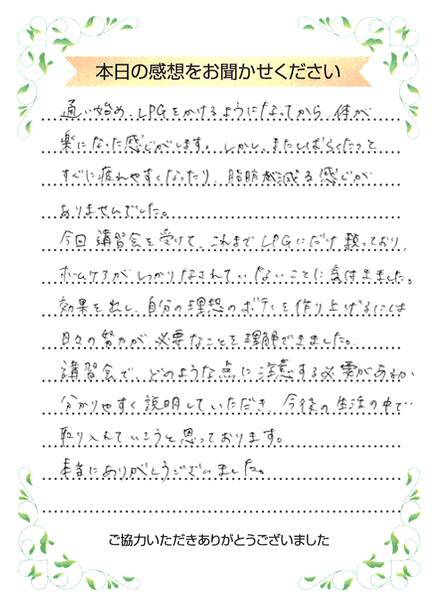 本日の感想をお聞かせください
通い始め、LPGをかけるようになってから、体が
楽になった感じがします。しかし、またしばらくたつと
すぐに疲れやすくなったり、脂肪が減る感じが
ありませんでした。
今回講習会を受けて、これまでLPGにだけ頼っており、
ホームケアがしっかりなされていないことに気付きました。
効果を出し、自分の理想のボディを作り上げるには
日々の努力が必要なことを理解できました。
講習会で、どのような点に注意する必要があるか
分かりやすく説明していただき、今後の生活の中で
取り入れていこうと思っております。
本当にありがとうございました。
ご協力いただきありがとうございました